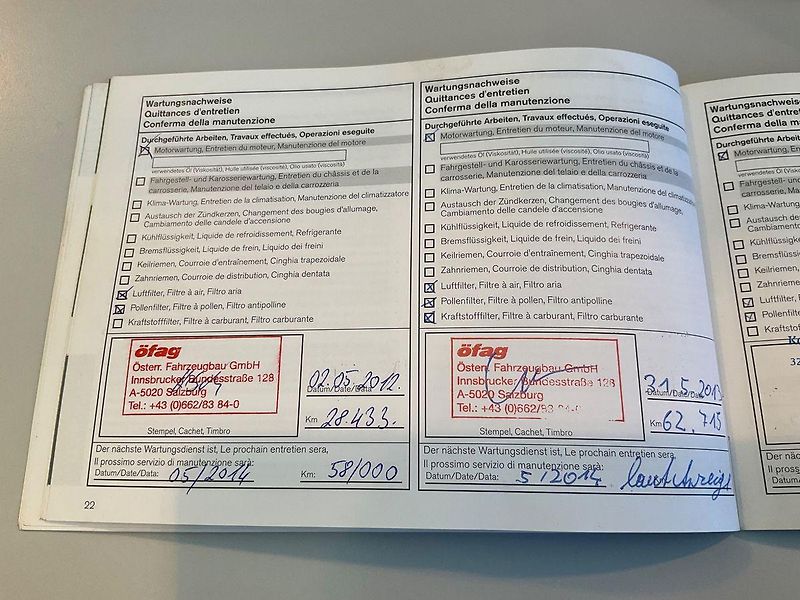 Wartungsnachweise
Quittances d'entretien
Conferma della manutenzione
Durchgeführte Arbeiten, Travaux effectués, Operazioni eseguite
Motorwartung, Entretien du moteur, Manutenzione del motore
verwendetes Öl (Viskosität), Huile utilisée (viscosité), Olio usato (viscosità)
Fahrgestell- und Karosseriewartung, Entretien du châssis et de la
carrosserie, Manutenzione del telaio e della carrozzeria
Klima-Wartung, Entretien de la climatisation, Manutenzione del climatizzatore
Austausch der Zündkerzen, Changement des bougies d'allumage,
Cambiamento delle candele d'accensione
Kühlflüssigkeit, Liquide de refroidissement, Refrigerante
Bremsflüssigkeit, Liquide de frein, Liquido dei freini
Keilriemen, Courroie d'entraînement, Cinghia trapezoidale
Zahnriemen, Courroie de distribution, Cinghia dentata
Luftfilter, Filtre à air, Filtro aria
Pollenfilter, Filtre à pollen, Filtro antipolline
Kraftstofffilter, Filtre à carburant, Filtro carburante
öfag
Österr. Fahrzeugbau GmbH
Innsbrucker Bundesstraße 128
A-5020 Salzburg
Tel.: +43 (0)662/83 84-0
Stempel, Cachet, Timbro
02.05.2012.
Datum/Date/Data:
Km 28.433.
Der nächste Wartungsdienst ist, Le prochain entretien sera,
Il prossimo servizio di manutenzione sarà:
Datum/Date/Data: 05/2014 Km: 58/000
22
Wartungsnachweise
Quittances d'entretien
Conferma della manutenzione
Durchgeführte Arbeiten, Travaux effectués, Operazioni eseguite
Motorwartung, Entretien du moteur, Manutenzione del motore
verwendetes Öl (Viskosität), Huile utilisée (viscosité), Olio usato (viscosità)
Fahrgestell- und Karosseriewartung, Entretien du châssis et de la
carrosserie, Manutenzione del telaio e della carrozzeria
Klima-Wartung, Entretien de la climatisation, Manutenzione del
Austausch der Zündkerzen, Changement des bougies d'allumage,
Cambiamento delle candele d'accensione
Kühlflüssigkeit, Liquide de refroidissement, Refrigerante
Bremsflüssigkeit, Liquide de frein, Liquido dei freini
Keilriemen, Courroie d'entraînement, Cinghia trapezoidale
Zahnriemen, Courroie de distribution, Cinghia dentata
Luftfilter, Filtre à air, Filtro aria
Pollenfilter, Filtre à pollen, Filtro antipolline
Kraftstofffilter, Filtre à carburant, Filtro carburante
öfag
Österr. Fahrzeugbau GmbH
Innsbrucker Bundesstraße 128
A-5020 Salzburg
Tel.: +43 (0)662/83 84-0
Stempel, Cachet, Timbro
31.5.2013
Datum/Date/Data:
Km 62.715
Der nächste Wartungsdienst ist, Le prochain entretien sera,
Il prossimo servizio di manutenzione sarà:
Datum/Date/Data: 5/2014 laut Anzeige
Wartungsnachweis
Quittances d'entretien
Conferma della
Durchgeführte Arbeiten,
Motorwartung,
verwendetes Öl
Fahrgestell-
carrosserie,
Klima-Wartung
Austausch
Cambiamento
Kühlflüssigkeit
Bremsflüssigkeit
Keilriemen,
Zahnriemen,
Luftfilter, Filtre
Pollenfilter,
Kraftstofffilter